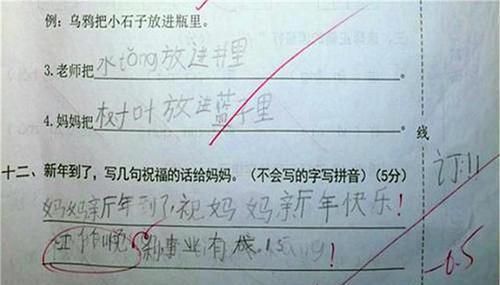 例：乌鸦把小石子放进瓶里。
3.老师把水tǒng放进井里。
4.妈妈把树叶放进蓝子里。
线
十二、新年到了，写几句祝福的话给妈妈。（不会写的字写拼音）（5分）
订11
妈妈新年到了，祝妈妈新年快乐！
事业有成！
-0.5